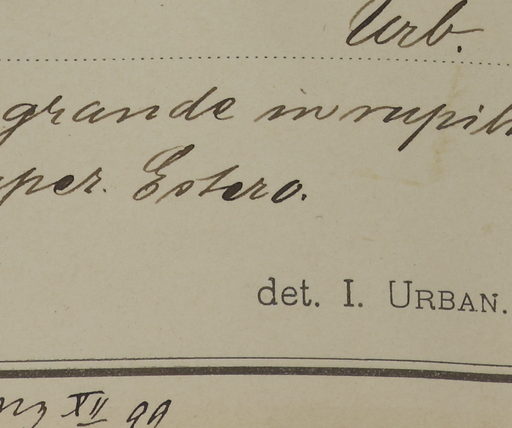 Urb.
grande in rupib
per. Estero.
det. I. URBAN.
XII 99